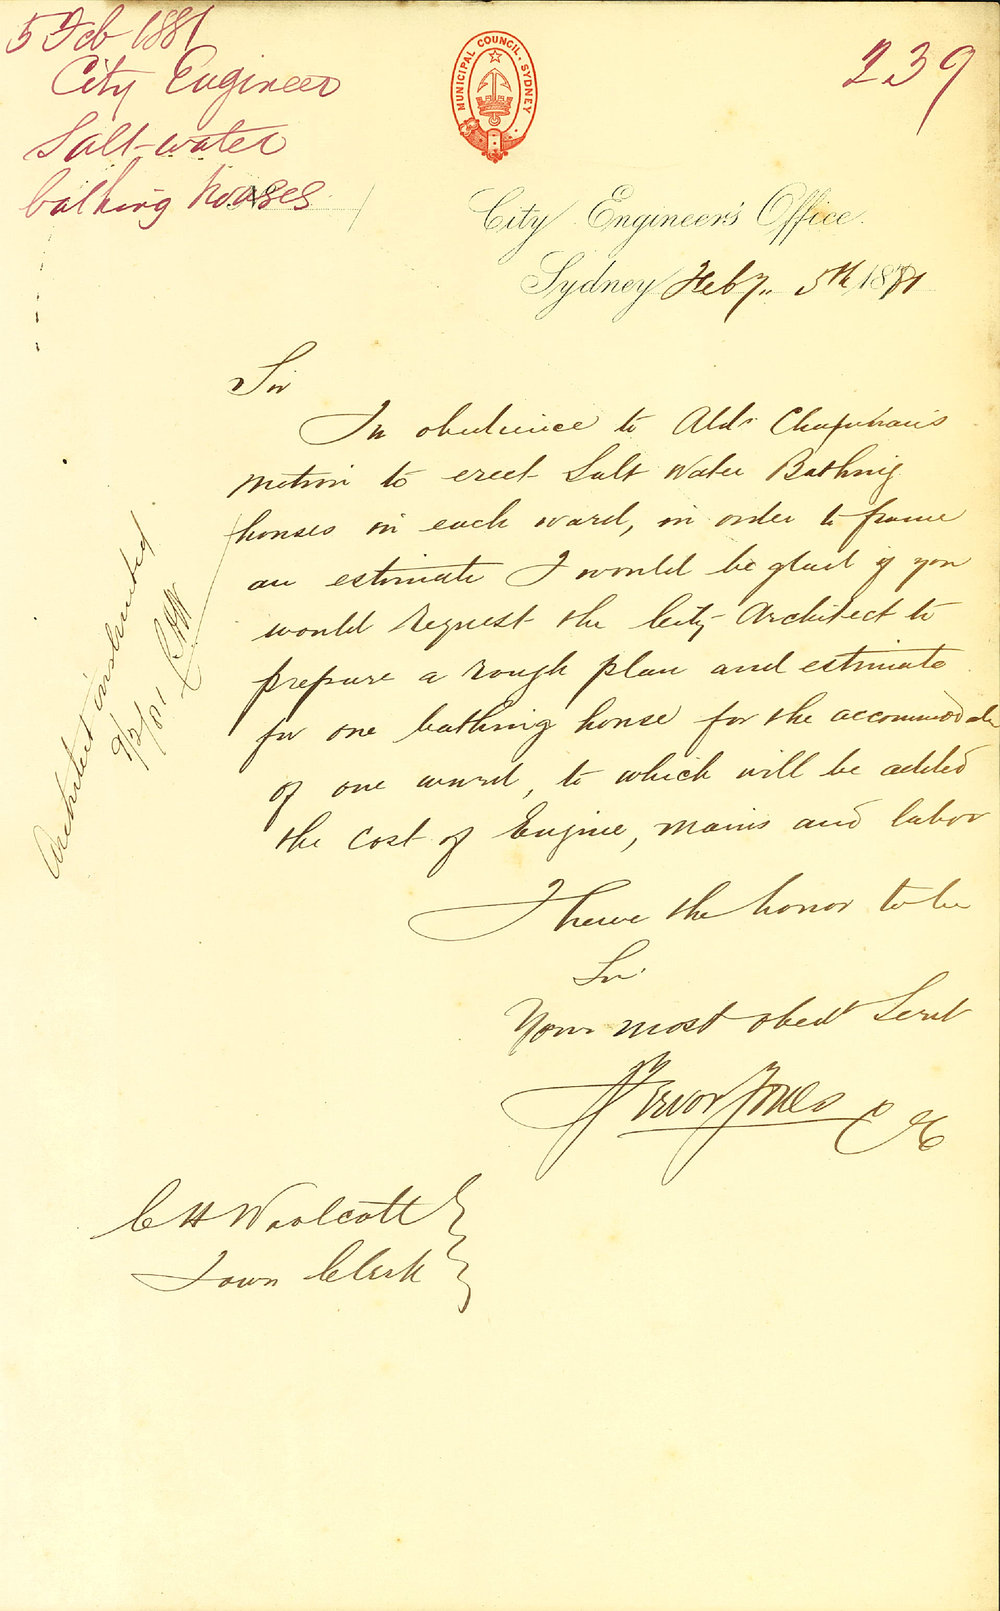 5 Feb 1881
City Engineer
Salt-water
bathing houses
239
MUNICIPAL COUNCIL. SYDNEY
City Engineer's Office
Sydney Feby. 5th 1881
Sir
In obedience to Aldr Chapman's
motion to erect Salt Water Bathing
houses in each ward, in order to frame
an estimate I would be glad if you
would request the City Architect to
prepare a rough plan and estimate
for one bathing house for the accommodatn
of one ward, to which will be added
the cost of Engine, mains and labor
I have the honor to be
Sir
Your most obedt Servt
Trevor Jones
C E
Architect instructed
9/2/81 CHW
C H Woolcott
Town Clerk